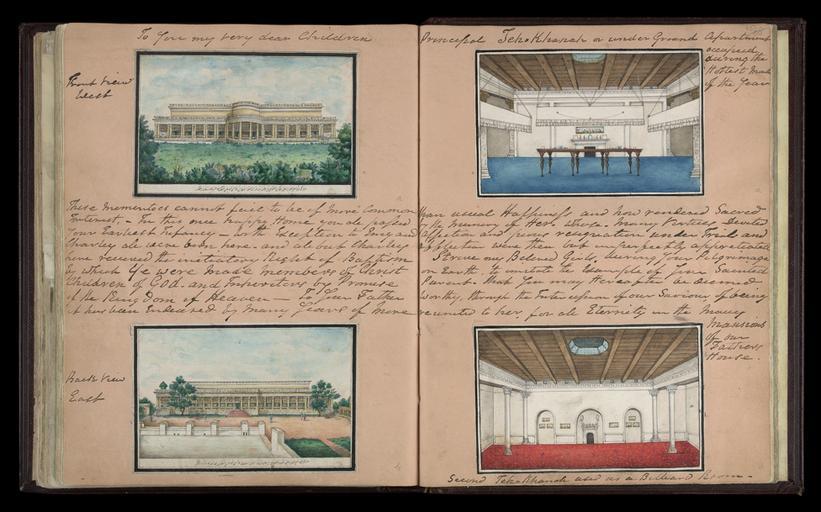 To You my very dear Children
Front View
West
These Mementoes cannot fail to be of More Common
Interest. - In this once Happy Home you all passed
Your Earliest Infancy - with the Exception to and
Charley all were born here. and all but Charley
have received the initiatory Right of Baptism
by which Ye were made members of Christ
Children of God. and Inheritors by Promise
of the KingDom of Heaven - To Your Father
it has been Endeared by many Years of More
Back View
East
Principal Teh Khanah or under Ground Apartment
occupied
during the
Hottest
of the Year
than usual Happiness and now rendered Sacred
by the Memory of Her whose many Virtues Devoted
affection and pious resignation under Trial and
affliction were then but imperfectly appreciated
Strive my Beloved Girls, during Your Pilgrimage
on Earth to imitate the Example of Your Sainted
Parent. that You may Hereafter be deemed
worthy, through the Intercession of our Saviour of being
reunited to her for all Eternity in the Many
Mansions
of our
Fathers
House.
Second Teh Khanah used as a Billiard Room -